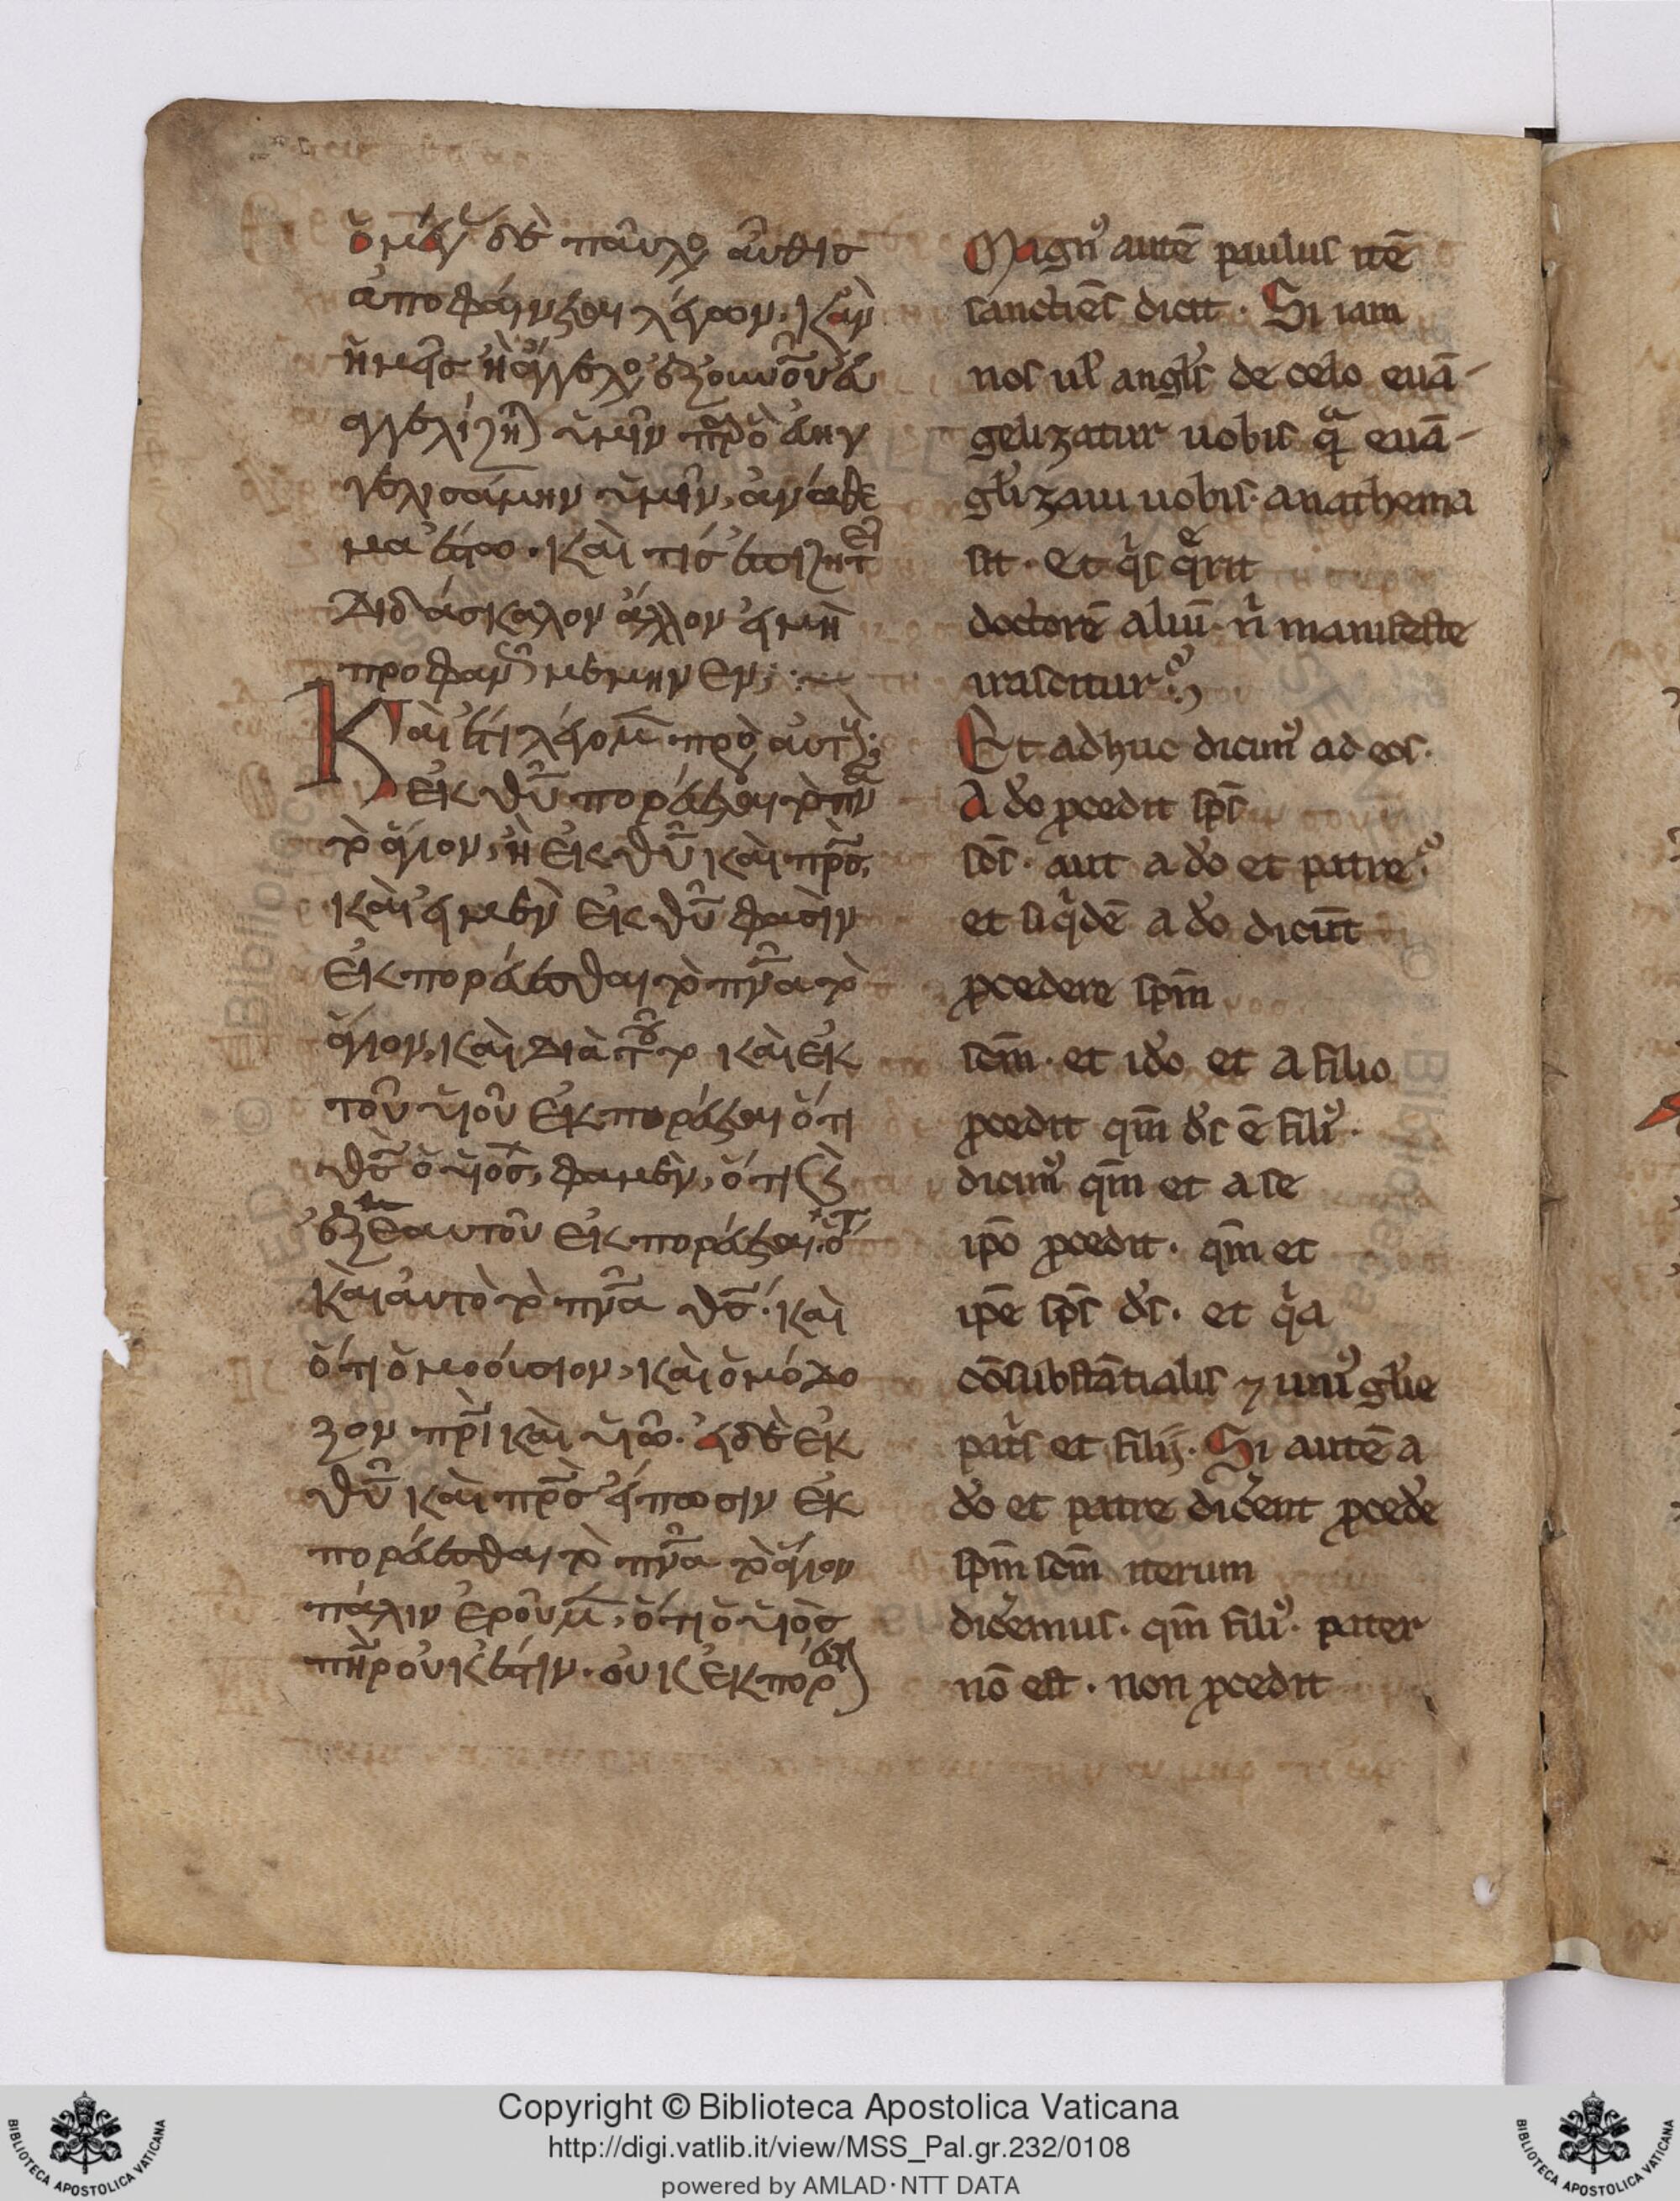 ὁ μέγας δὲ παῦλος αὖθις
ἀποφαίνεται λέγων, κἂν
ἡμεῖς ἢ ἄγγελος ἐξ οὐρανοῦ εὐ
αγγελίζηται ὑμῖν παρ' ὃ εὐηγ
γελισάμην ὑμῖν, ἀνάθε
μα ἔστω. καὶ τίς ἐπιζητεῖ
διδάσκαλον ἄλλον εἰ μὴ
προφανῶς μεμηνεν;
Καὶ ἔτι λέγομεν πρὸς αὐτούς·
ἐκ θῡ πορεύεται τὸ πνᾱ
τὸ ἅγιον, ἢ ἐκ θῡ καὶ πρ̄ς,
καὶ εἰ μεν ἐκ θῡ φασὶν
ἐκπορεύεσθαι τὸ πνᾱ τὸ
ἅγιον, καὶ διὰ τοῦτο καὶ ἐκ
τοῦ υἱοῦ ἐκπορεύεται ὅτι
θς̄ ὁ υἱός, φαμὲν, ὅτι καὶ
ἐξ ἑαυτοῦ ἐκπορεύεται ὅτι
καὶ αὐτὸ τὸ πνᾱ θς̄. καὶ
ὅτι ὁμοούσιον, καὶ ὁμόδο
ξον πρ̄ὶ καὶ υἱῶ. εἰ δὲ ἐκ
θῡ καὶ πρ̄ς εἴπωσιν ἐκ
πορεύεσθαι τὸ πνᾱ τὸ ἅγιον
πάλιν ἐροῦμεν, ὅτι ὁ υἱὸς
πη̄ρ οὐκ ἔστιν. οὐκ ἐκπορεύεται
Magn᾽ autē paulus itē
sanctiēs dicit. Si iam
nos ul᾽ angl᾽s de celo euā-
gelizatur uobis qͣ euā-
gl᾽izaui uobis. anathema
sit. Et qⁱs q̄rit
doctorē aliū nⁱ manifeste
irascitur
Et adhuc dicim᾽ ad eos.
A do᾽ ꝓcedit sp̄s
sc̄s. aut a do᾽ et patre
et siqⁱdē a do᾽ dicūt
ꝓcedere sp̄m
sc̄m. et ido᾽ et a filio
ꝓcedit qm̄ ds᾽ ē fili᾽.
dicim᾽ qm̄ et a se
ip̄o ꝓcedit. qm̄ et
ip̄e sp̄s ds᾽. et qⁱa
cōsubstātialis ⁊ uni᾽ gl᾽ie
patⁱs et filij. Si autē a
do᾽ et patre dic᾽ent ꝓced᾽e
sp̄m sc̄m iterum
dic᾽emus. qm̄ fili᾽. pater
nō est. non ꝓcedit
Copyright © Biblioteca Apostolica Vaticana
http://digi.vatlib.it/view/MSS_Pal.gr.232/0108
powered by AMLAD·NTT DATA
BIBLIOTECA APOSTOLICA VATICANA
BIBLIOTECA APOSTOLICA VATICANA